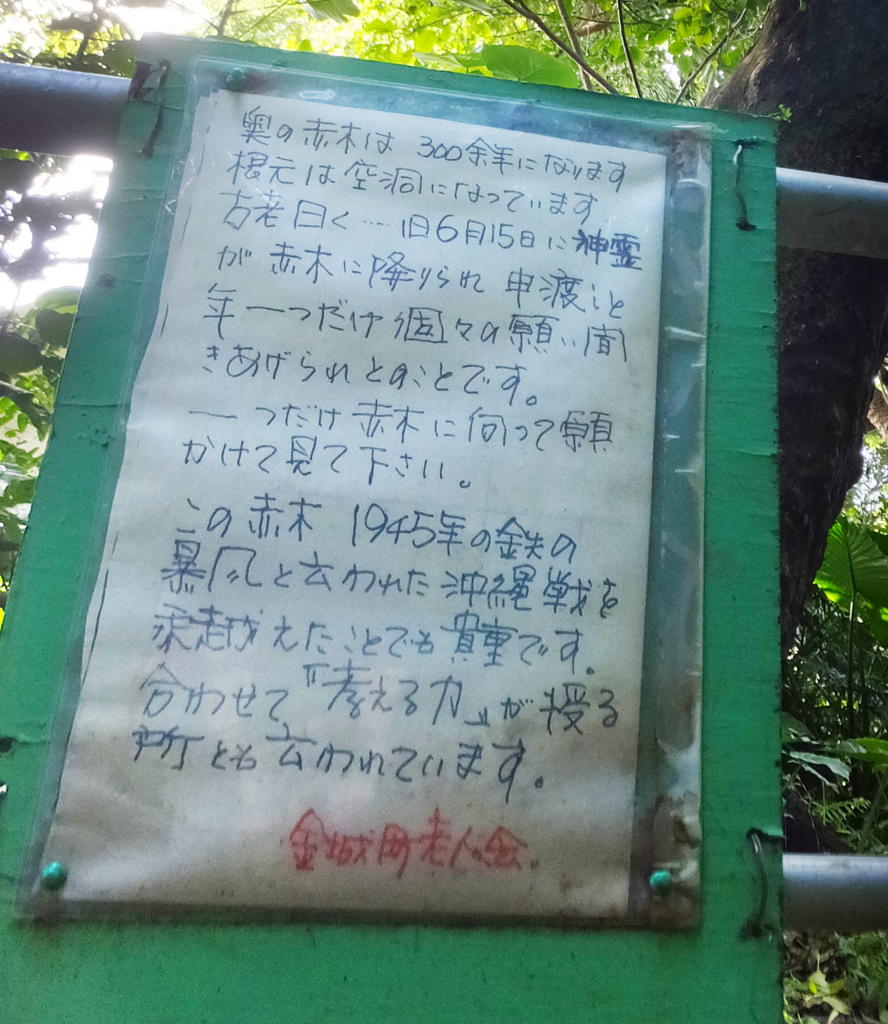 奥の赤木は 300余年になります
根元は空洞になっています
古老曰く…旧6月15日に神霊
が赤木に降りられ 申渡こと
年一つだけ個々の願い聞
きあげられとのことです。
一つだけ赤木に向って願
かけて見て下さい。
この赤木 1945年の鉄の
暴風と云われた沖縄戦を
乗越えたことでも貴重です。
合わせて『考える力』が授る
所とも云われています。
金城町老人会.